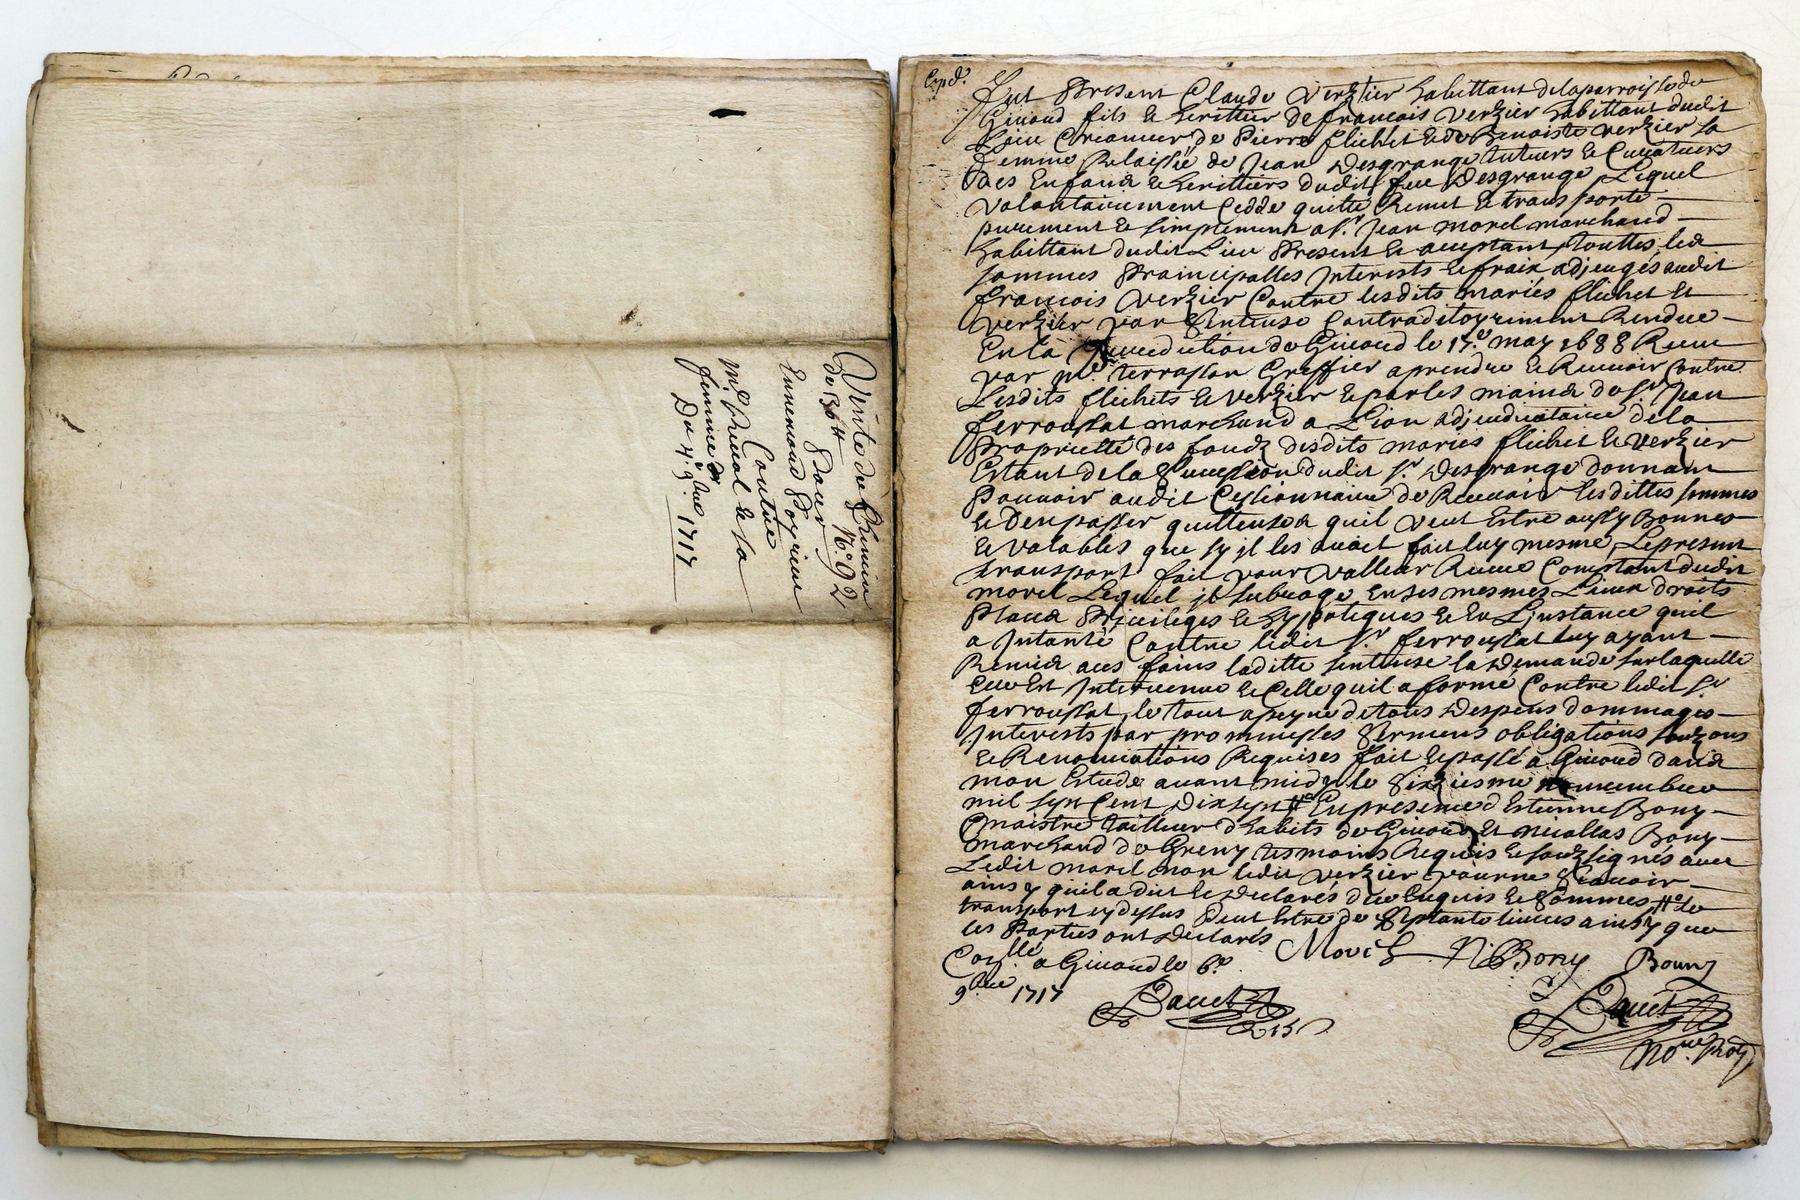 Vente de
de 36tt N.° 92
Pour
Ennemond Poyrieux
Contre
femme
Du 4.e 9.bre 1717
Exp.d
Fut Present Claude Verzier habittant de la parroisse de
Givord fils & herittier de francois Verzier habittant dudit
Lieu Creancier de Pierre flichet & de Benoiste Verzier sa
femme Relaissée de Jean Desgrange tuteurs & Curateurs
des Enfans & herittiers dudit feu Desgrange Lequel
volontairement Cedde quitte Remet & transporte
purement & simplement a S.r Jean morel marchand
habittant dudit Lieu Present & aceptant touttes les
sommes Prainsipalles Interests & fraix adjeugés audit
francois Verzier Contre lesdits maries flichet &
verzier par Sentense Contraditoyrement Rendue
En la Jurediction de Givord le 17.e may 1688 Receue
par m.e terrasson Greffier aprendre & Recevoir Contre
Lesdits flichets & Verzier & par les mains de S.r Jean
ferroussat marchand a Lion adjudicataire de la
Proprietté des fondz desdits maries flichet & Verzier
Estant de la Sucession dudit S.r Desgrange donnant
Pouvoir audit Cessionnaire de Recevoir lesdittes sommes
& Den passer quittenses quil veut Estre aussy Bonnes
& valables que sy il les avoit fait luy mesme, Le present
transport fait pour valleur Receue Comptant dudit
morel Lequel il subroge En ses mesmes Lieux droits
Places Privileges & hypoteques & En L'instance quil
a Intanté Contre ledit S.r ferroussat luy ayant
Remis aces fains laditte sentense la Demande sur laquelle
Elle Est Intervenue & Celle quil a formé Contre ledit S.r
ferroussat, le tout a peyne de tous Despens dommages
Interests par promeisses Sermens obligations
& Renonciations Requises fait & passé a Givord dans
mon Estude avant midy le Sixiesme novembre
mil sept Cent Dix sept En presence d'Estienne Bony
maistre tailleur d'habits de Givord Et nicollas Bony
marchand de Greny tesmoins Requis & soubzsignés avec
Ledit morel non ledit Verzier pour ne Scavoir
ainsy quil a dit & Declaré De ce Enquis & Sommés le
transport cy dessus Peut Estre de Septante livres ainsy que
les Parties ont Declarés
Morel N. Bony Bouny
Con.llé a Givord le 6.e
9.bre 1717
Bauet
Bauet
No.re Roy